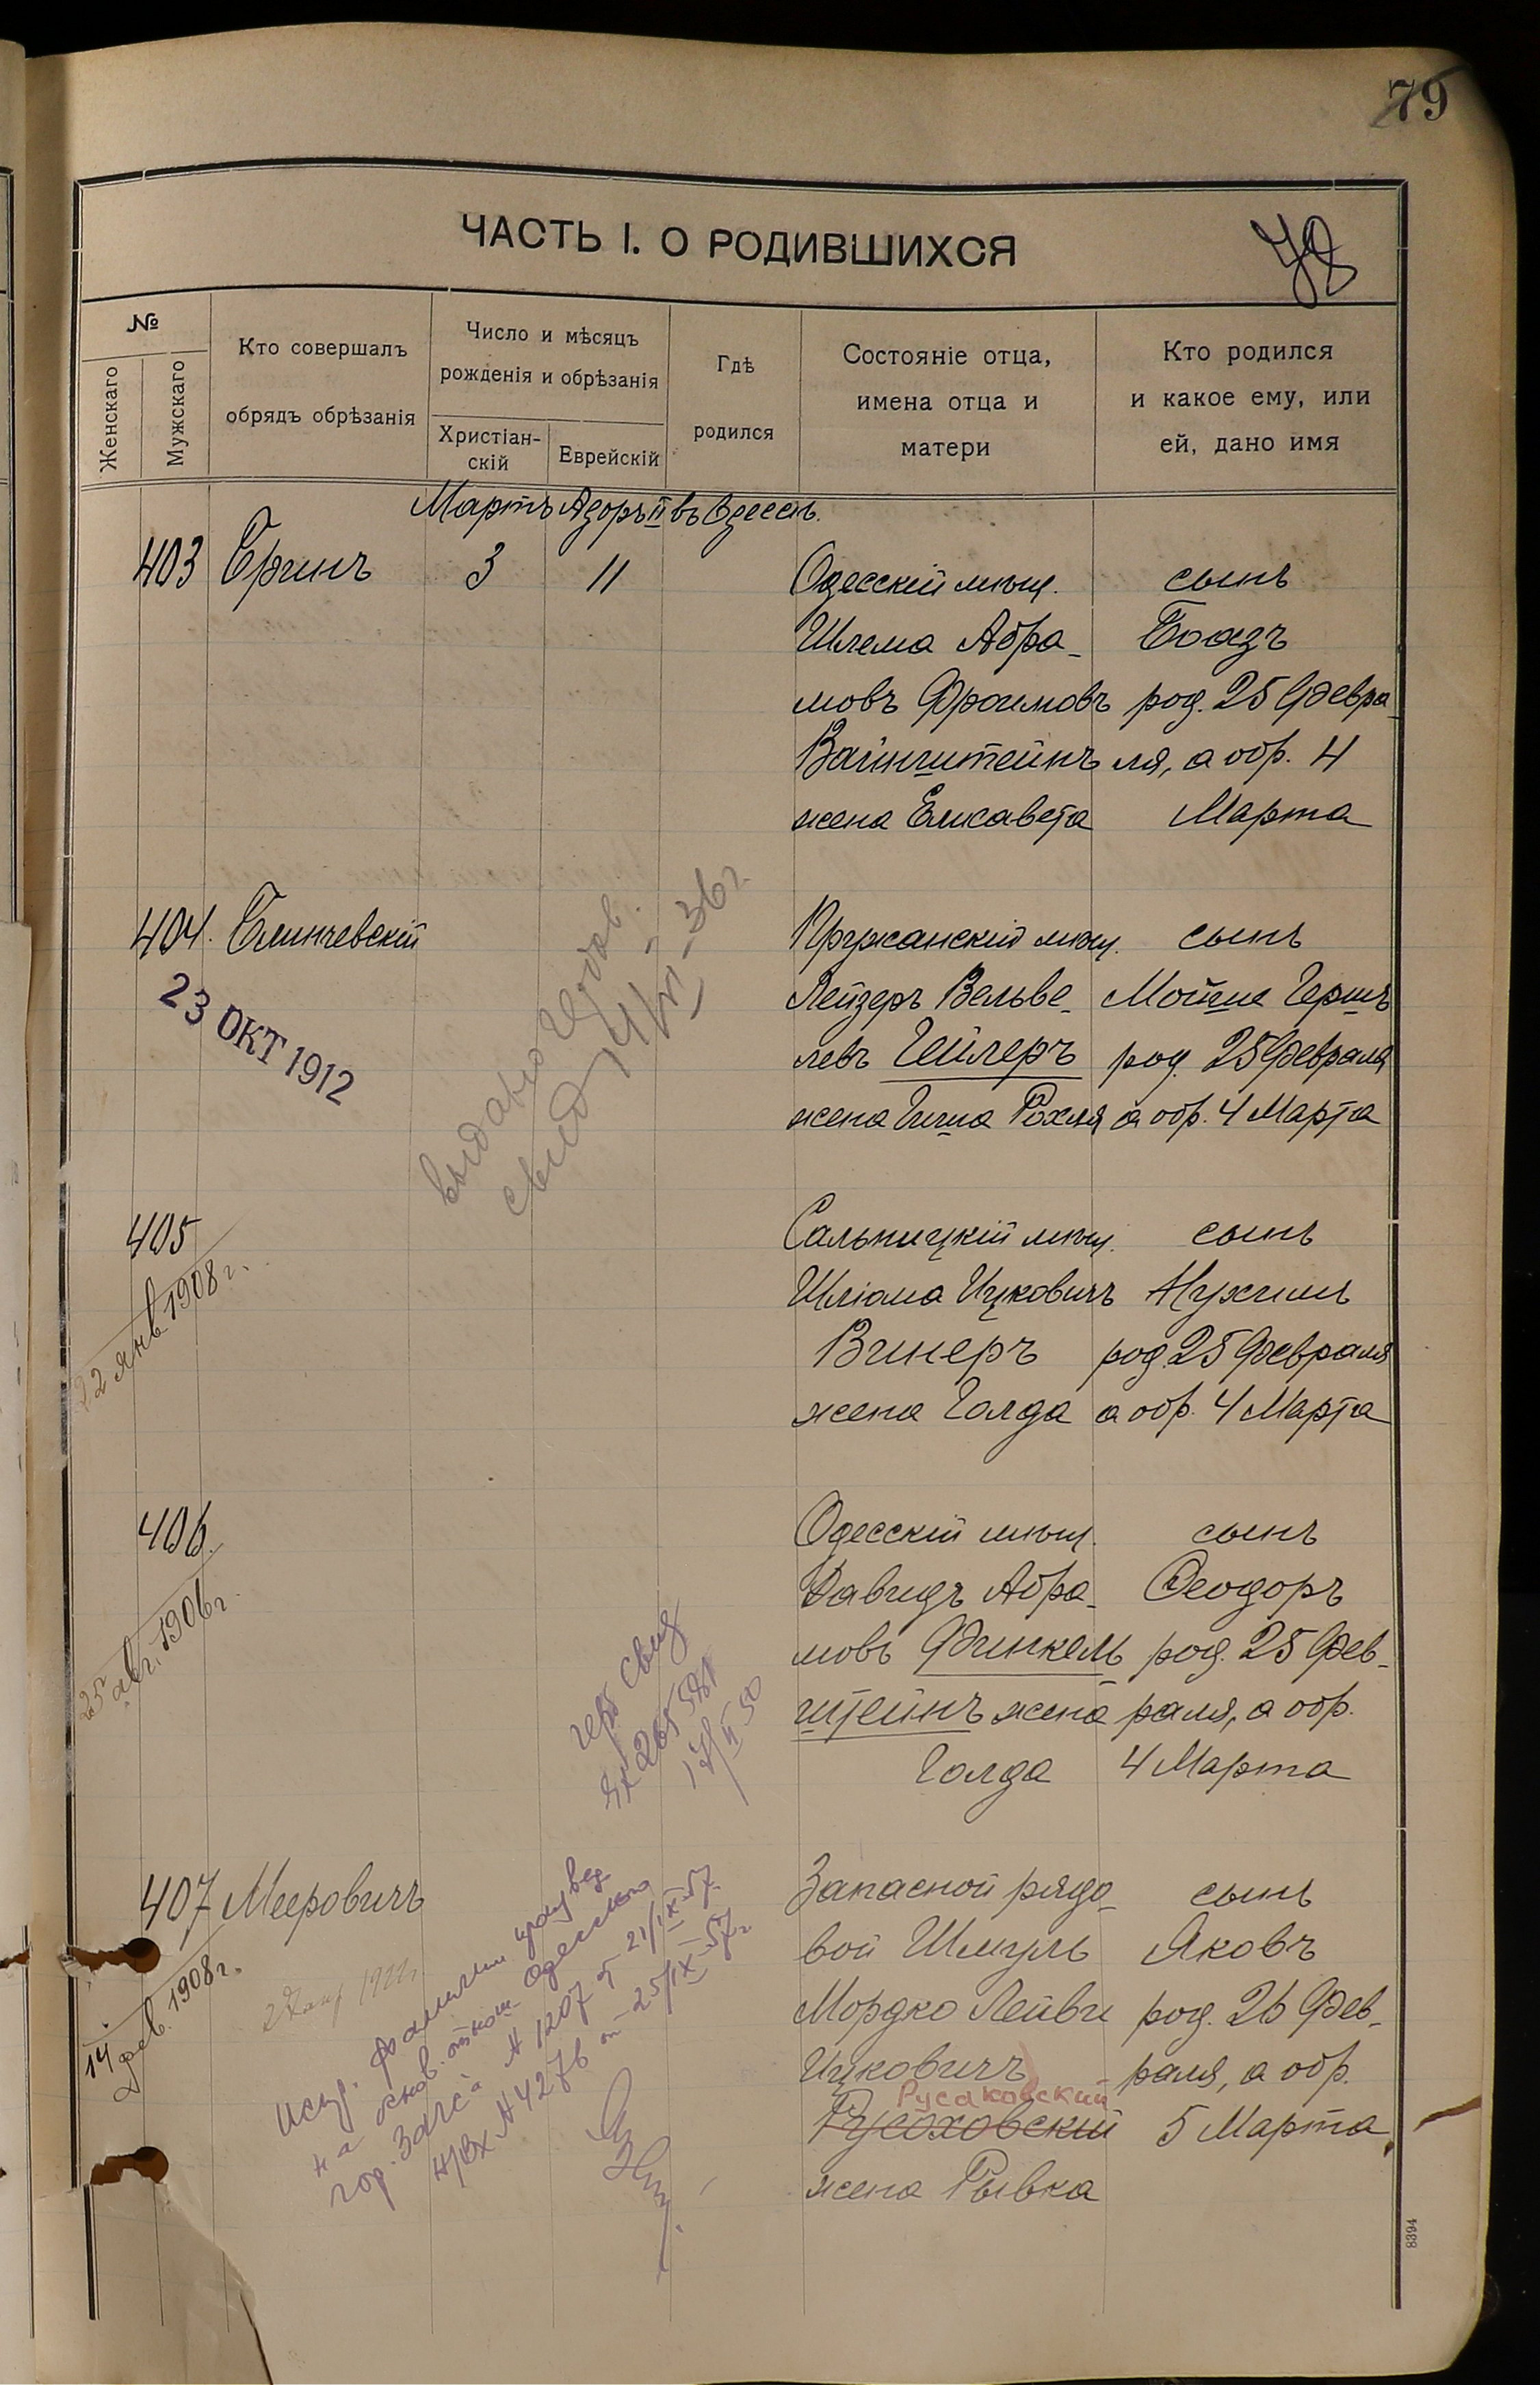 79
ЧАСТЬ I. О РОДИВШИХСЯ
78
№
Женскаго
Мужскаго
Кто совершалъ
обрядъ обрѣзанія
Число и мѣсяцъ
рожденія и обрѣзанія
Христіан-
скій
Еврейскій
Гдѣ
родился
Состояніе отца,
имена отца и
матери
Кто родился
и какое ему, или
ей, дано имя
Мартъ Адоръ II въ Одессѣ.
403 3 11 Одесскій мѣщ. сынъ
Шлема Абра- Боазъ
мовъ Фроимовъ род. 25 Февра-
Вайнштейнъ ля, а обр. 4
жена Елисавета Марта
404. Слинчевскій Пружанскій мѣщ. сынъ
Лейзеръ Вельве- Мойше Гершъ
левъ Гейлеръ род. 25 Февраля
жена Рохля а обр. 4 Марта
23 ОКТ 1912
выдано
свид 36 г.
405 Сальницкій мѣщ. сынъ
Шліома Ицковичъ Нухимъ
Винеръ род. 25 Февраля
жена Голда а обр. 4 Марта
22 янв 1908 г.
406. Одесскій мѣщ. сынъ
Давидъ Абра- Феодоръ
мовъ Финкель род. 25 Фев-
штейнъ жена раля, а обр.
Голда 4 Марта
25 авг. 1906 г.
свид
17/II 50
407 Мееровичъ Запасной рядо- сынъ
вой Шмуль Яковъ
Мордко Лейви род. 26 Фев-
Ицковичъ раля, а обр.
Русаковский
Русоховскій 5 Марта
жена Рывка
14 фев. 1908 г.
Испр. фамилии
на основ. Одесского
гор. Загса № 1207 от 21/IX-57
№ 4276 от 25/IX-57 г.
8394